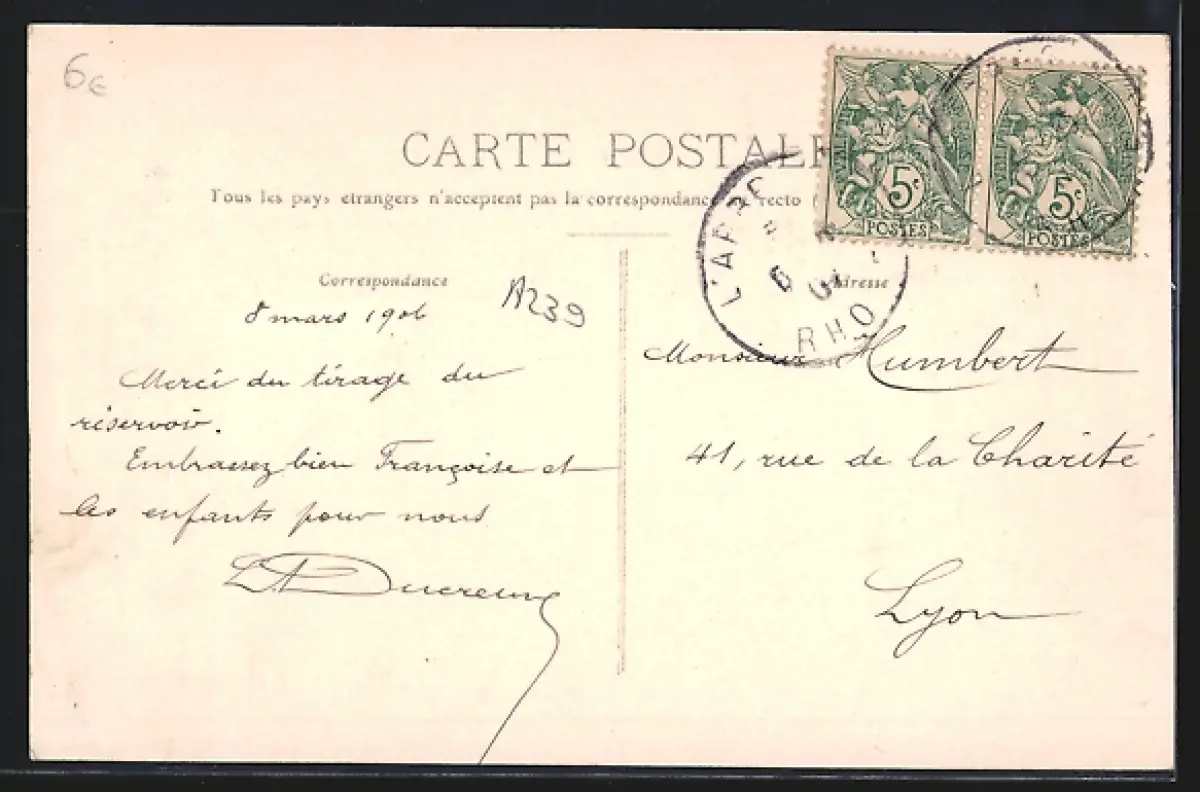 6€
CARTE POSTALE
Tous les pays étrangers n'acceptent pas la correspondance recto
Correspondance
Adresse
A239
8 mars 1906
Merci du tirage du
réservoir.
Embrassez bien Françoise et
les enfants pour nous
Ducreux
Monsieur Humbert
41, rue de la Charité
Lyon
L'ARBR
RHO
5c
POSTES
5c
POSTES